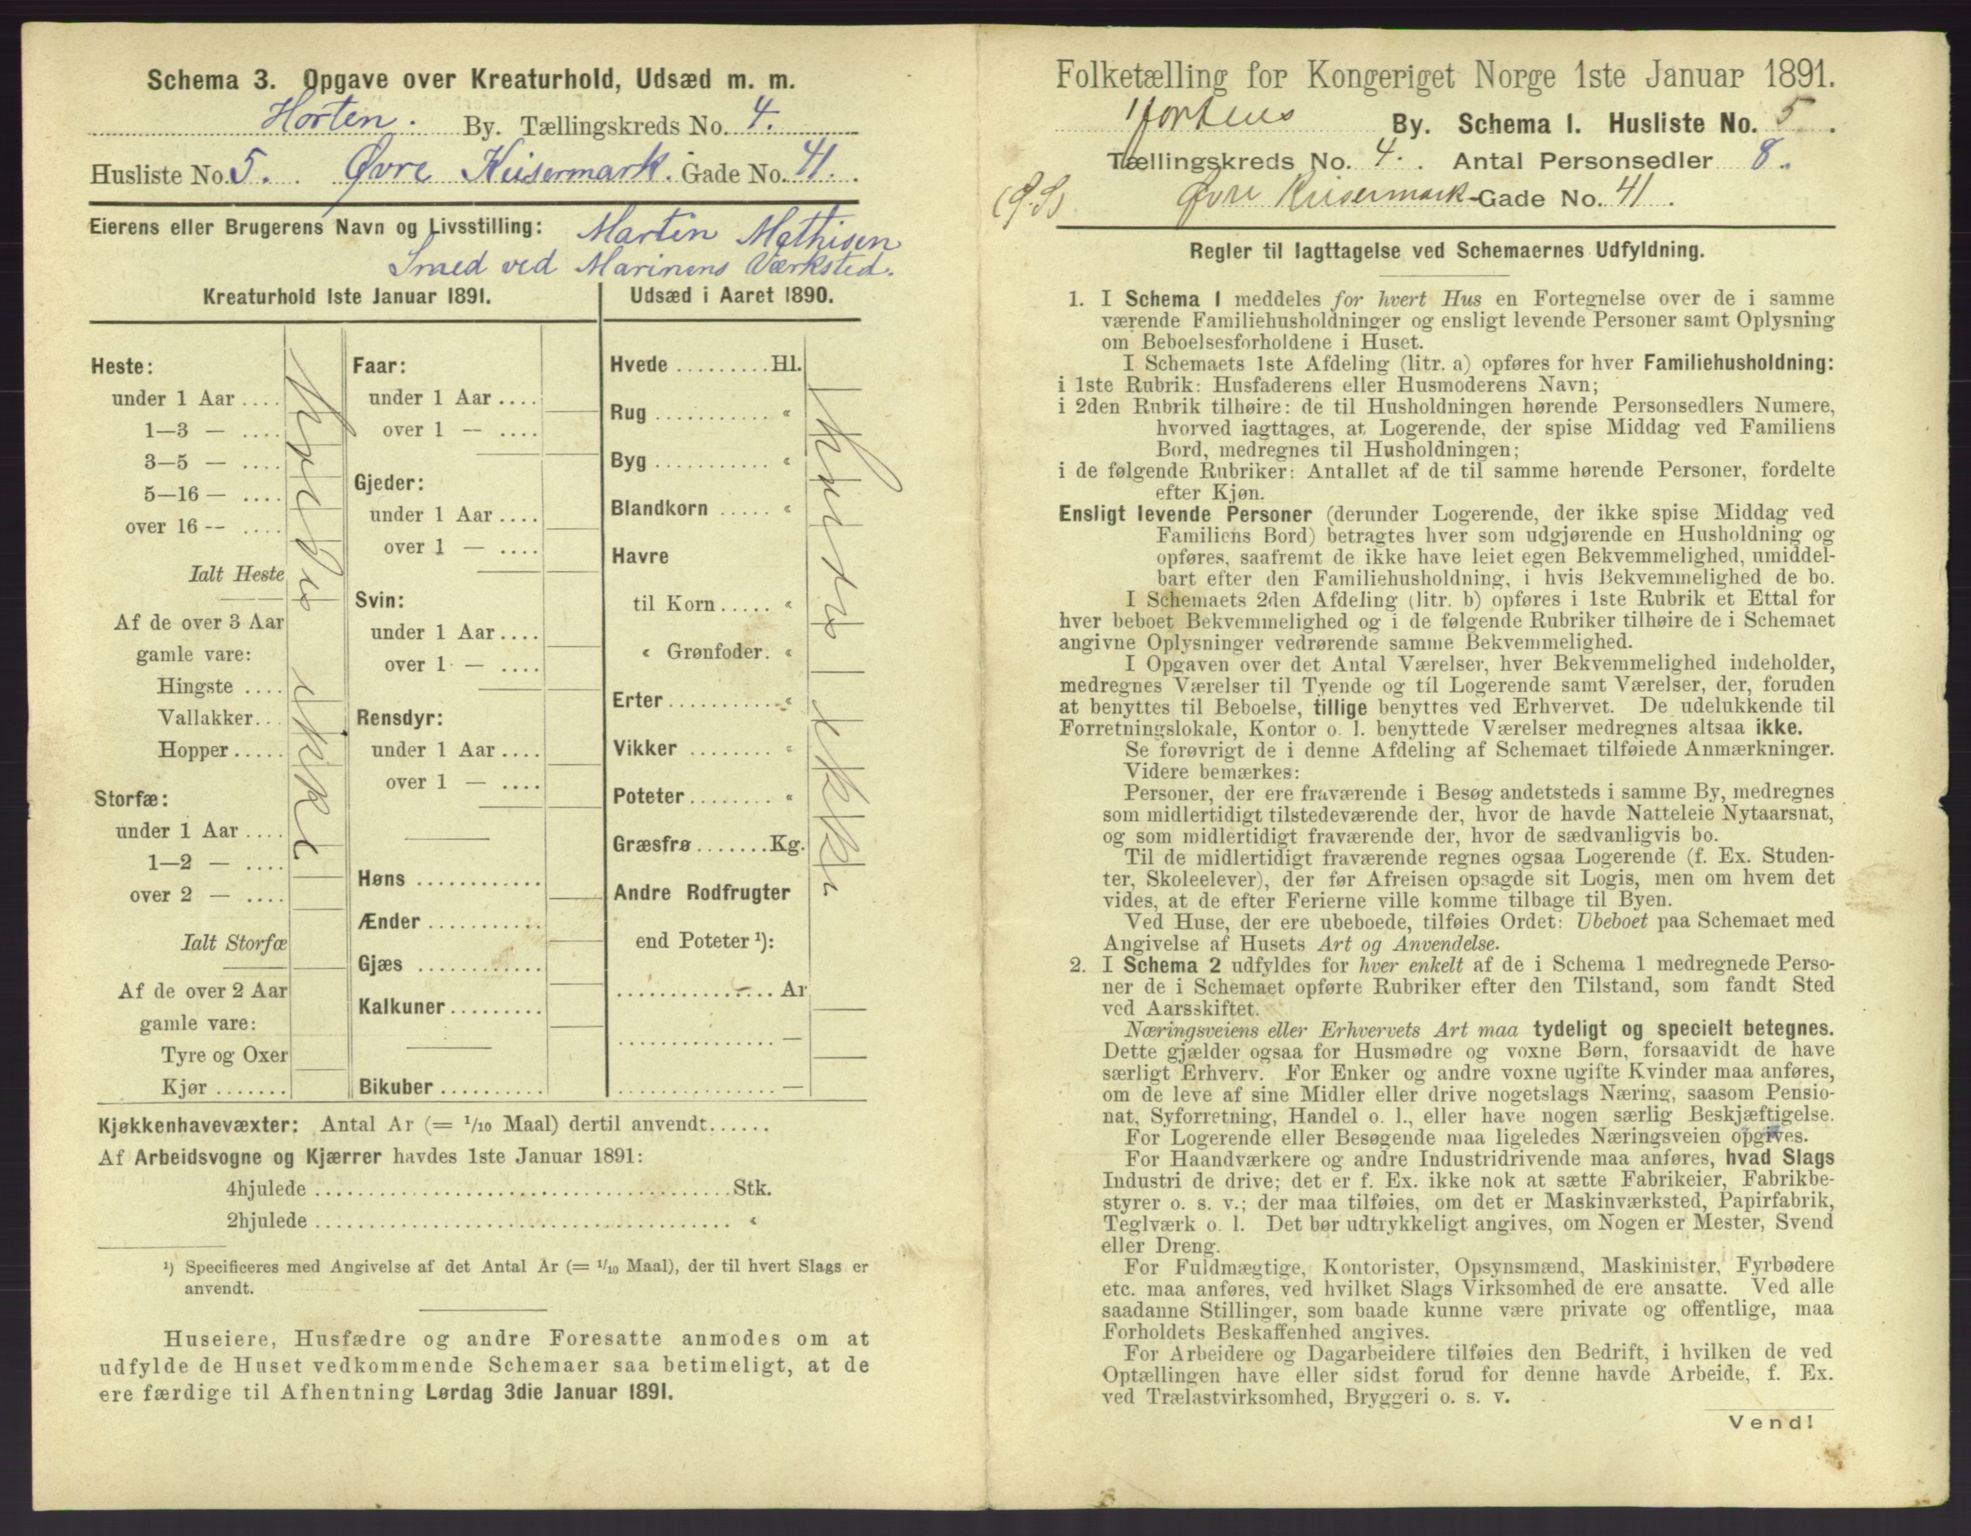 Schema 3. Opgave over Kreaturhold, Udsæd m. m.
Horten. By. Tællingskreds No. 4.
Husliste No. 5. Øvre Keisermark. Gade No. 41.
Eierens eller Brugerens Navn og Livsstilling: Martin Mathisen
Smed ved Marinens Værksted.
Kreaturhold 1ste Januar 1891.
Heste:
under 1 Aar ....
1—3 — ....
3—5 — ....
5—16 — ....
over 16 -- ....
Ialt Heste
Af de over 3 Aar
gamle vare:
Hingste ....
Vallakker...
Hopper .....
Storfæ:
under 1 Aar ....
1—2 — ....
over 2 — ....
Ialt Storfæ
Af de over 2 Aar
gamle vare:
Tyre og Oxer
Kjør .......
Faar:
under 1 Aar ....
over 1 — ....
Gjeder:
under 1 Aar ....
over 1 — ....
Svin:
under 1 Aar ....
over 1 — ....
Rensdyr:
under 1 Aar ....
over 1 — ....
Høns ............
Ænder ...........
Gjæs ............
Kalkuner.........
Bikuber ..........
Udsæd i Aaret 1890.
Hvede ......... Hl.
Rug ........... «
Byg ........... «
Blandkorn ..... «
Havre
til Korn ..... «
« Grønfoder. «
Erter .......... «
Vikker ........ «
Poteter ........ «
Græsfrø ....... Kg.
Andre Rodfrugter
end Poteter ¹):
............... Ar
............... —
............... —
ikke
Kjøkkenhavevæxter: Antal Ar (= 1/10 Maal) dertil anvendt......
Af Arbeidsvogne og Kjærrer havdes 1ste Januar 1891:
4hjulede ....................................... Stk.
2hjulede ....................................... «
¹) Specificeres med Angivelse af det Antal Ar (= 1/10 Maal), der til hvert Slags er
anvendt.
Huseiere, Husfædre og andre Foresatte anmodes om at
udfylde de Huset vedkommende Schemaer saa betimeligt, at de
ere færdige til Afhentning Lørdag 3die Januar 1891.
Folketælling for Kongeriget Norge 1ste Januar 1891.
Hortens By. Schema I. Husliste No. 5.
Tællingskreds No. 4. Antal Personsedler 8.
Øvre Keisermark-Gade No. 41.
Regler til Iagttagelse ved Schemaernes Udfyldning.
1. I Schema I meddeles for hvert Hus en Fortegnelse over de i samme
værende Familiehusholdninger og ensligt levende Personer samt Oplysning
om Beboelsesforholdene i Huset.
I Schemaets 1ste Afdeling (litr. a) opføres for hver Familiehusholdning:
i 1ste Rubrik: Husfaderens eller Husmoderens Navn;
i 2den Rubrik tilhøire: de til Husholdningen hørende Personsedlers Numere,
hvorved iagttages, at Logerende, der spise Middag ved Familiens
Bord, medregnes til Husholdningen;
i de følgende Rubriker: Antallet af de til samme hørende Personer, fordelte
efter Kjøn.
Ensligt levende Personer (derunder Logerende, der ikke spise Middag ved
Familiens Bord) betragtes hver som udgjørende en Husholdning og
opføres, saafremt de ikke have leiet egen Bekvemmelighed, umiddel-
bart efter den Familiehusholdning, i hvis Bekvemmelighed de bo.
I Schemaets 2den Afdeling (litr. b) opføres i 1ste Rubrik et Ettal for
hver beboet Bekvemmelighed og i de følgende Rubriker tilhøire de i Schemaet
angivne Oplysninger vedrørende samme Bekvemmelighed.
I Opgaven over det Antal Værelser, hver Bekvemmelighed indeholder,
medregnes Værelser til Tyende og til Logerende samt Værelser, der, foruden
at benyttes til Beboelse, tillige benyttes ved Erhvervet. De udelukkende til
Forretningslokale, Kontor o. l. benyttede Værelser medregnes altsaa ikke.
Se forøvrigt de i denne Afdeling af Schemaet tilføiede Anmærkninger.
Videre bemærkes:
Personer, der ere fraværende i Besøg andetsteds i samme By, medregnes
som midlertidigt tilstedeværende der, hvor de havde Natteleie Nytaarsnat,
og som midlertidigt fraværende der, hvor de sædvanligvis bo.
Til de midlertidigt fraværende regnes ogsaa Logerende (f. Ex. Studen-
ter, Skoleelever), der før Afreisen opsagde sit Logis, men om hvem det
vides, at de efter Ferierne ville komme tilbage til Byen.
Ved Huse, der ere ubeboede, tilføies Ordet: Ubeboet paa Schemaet med
Angivelse af Husets Art og Anvendelse.
2. I Schema 2 udfyldes for hver enkelt af de i Schema 1 medregnede Perso-
ner de i Schemaet opførte Rubriker efter den Tilstand, som fandt Sted
ved Aarsskiftet.
Næringsveiens eller Erhvervets Art maa tydeligt og specielt betegnes.
Dette gjælder ogsaa for Husmødre og voxne Børn, forsaavidt de have
særligt Erhverv. For Enker og andre voxne ugifte Kvinder maa anføres,
om de leve af sine Midler eller drive nogetslags Næring, saasom Pensio-
nat, Syforretning, Handel o. l., eller have nogen særlig Beskjæftigelse.
For Logerende eller Besøgende maa ligeledes Næringsveien opgives.
For Haandværkere og andre Industridrivende maa anføres, hvad Slags
Industri de drive; det er f. Ex. ikke nok at sætte Fabrikeier, Fabrikbe-
styrer o. s. v.; der maa tilføies, om det er Maskinværksted, Papirfabrik,
Teglværk o. l. Det bør udtrykkeligt angives, om Nogen er Mester, Svend
eller Dreng.
For Fuldmægtige, Kontorister, Opsynsmænd, Maskinister, Fyrbødere
etc. maa anføres, ved hvilket Slags Virksomhed de ere ansatte. Ved alle
saadanne Stillinger, som baade kunne være private og offentlige, maa
Forholdets Beskaffenhed angives.
For Arbeidere og Dagarbeidere tilføies den Bedrift, i hvilken de ved
Optællingen have eller sidst forud for denne havde Arbeide, f. Ex.
ved Trælastvirksomhed, Bryggeri o. s. v.
Vend!